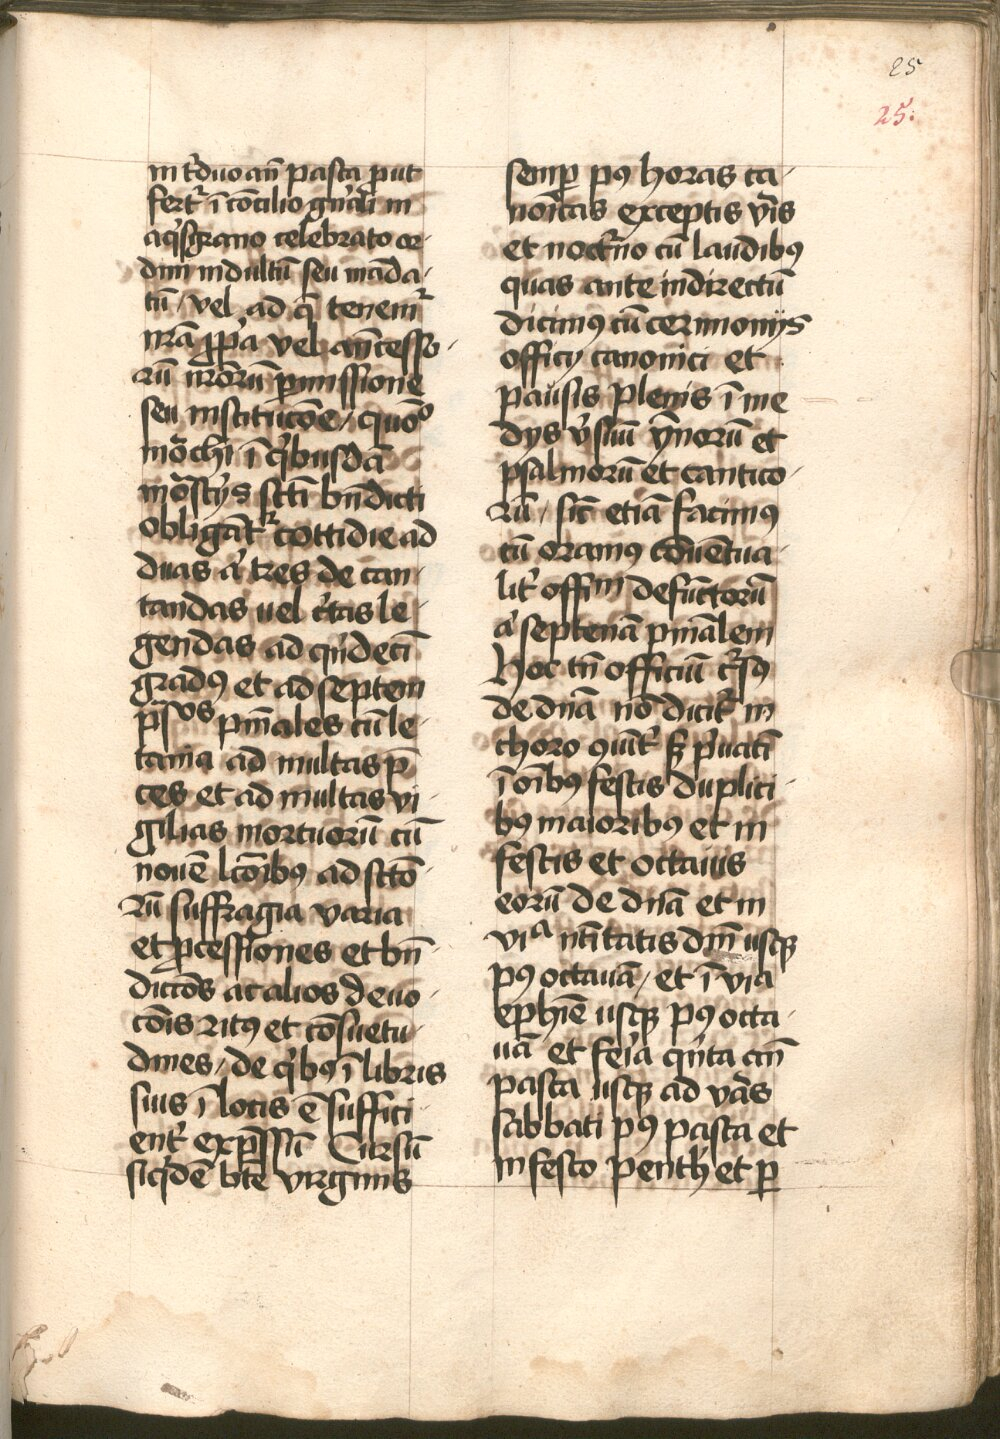 25
25.
in t'duo an̄ pasca put
fert᷑ ī cōcilio gn̄ali in
aq'sgrano celebrato or
dini indultū seu māda
tū / vel ad q̄ tenem᷑
nrā ꝓpa vel an̄cesso
rū nr̄orū pmissione
seu institucōe / quōº
mōchi ī q'busdā
mōstijs scti bn̄dicti
obligāt᷑ cottidie ad
duas a' tres de can
tandas uel c'tas le
gendas ad qn'decī
gradꝰ et ad septem
p̄sos pnīales cū le
tania ad multas p̄
ces et ad multas vi
gilias mortuorū cū
nouē lcōibꝰ ad sctō
rū suffragia varia
et ꝓcessiones et bn̄
dictōs ac alios deuo
cōis ritꝰ et cōsuetu
dines / de q'bꝰ ī libris
suis ī locis ē suffici
ent' expssū Cursū
siq'dē bte virginis
semꝑ pꝰ horas ca
noīcas exceptis vr̄is
et noct'no cū laudibꝰ
quas ante indirectū
dicimꝰ cū cerimonijs
officij canonici et
pausis plenis ī me
dijs v'suū ȳnorū et
psalmorū et cantico
rū / sic̄ etiā facimꝰ
cū oramꝰ cōuētua
lit' offim defūctorū
a' septenā pniālem
hoc tn̄ officiū c'sꝰ
de dnā nō dicit᷑ in
choro 9uīt' sꝫ p'uatī
ī oībꝰ festis duplici
bꝰ maioribꝰ et in
festis et octauis
eorū de dnā et in
viᵃ ntītatis dnī usqꝫ
pꝰ octauā / et ī via
ephīe usqꝫ pꝰ octa
uā et fe'ia qn'ta an̄
pasca usqꝫ ad vās
sabbati pꝰ pasca et
in festo penth' et ꝑ